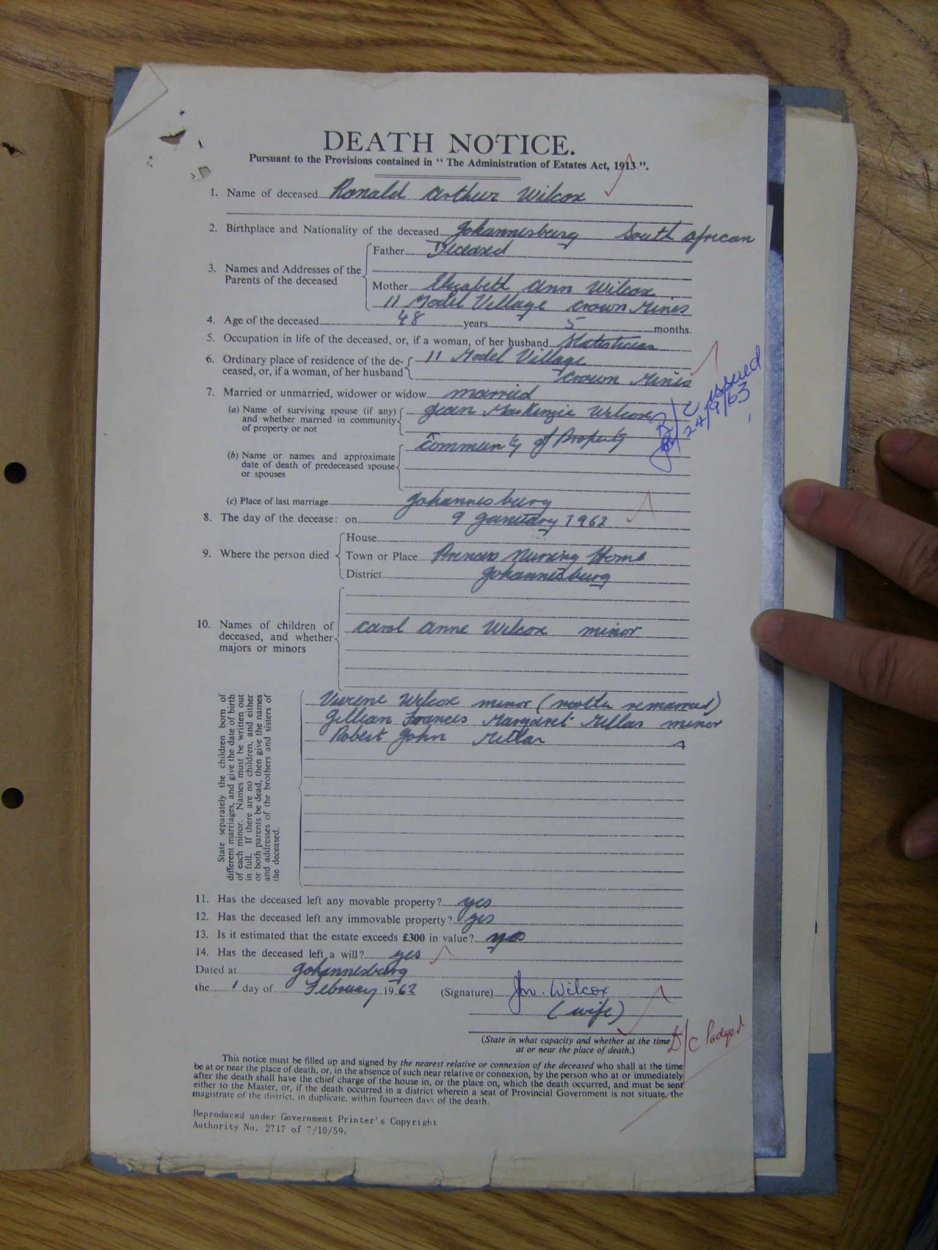 DEATH NOTICE.
Pursuant to the Provisions contained in "The Administration of Estates Act, 1913".
1. Name of deceased Ronald Arthur Wilcox
2. Birthplace and Nationality of the deceased Johannesburg South African
3. Names and Addresses of the Parents of the deceased
Father Deceased
Mother Elizabeth Ann Wilcox
11 Model Village Crown Mines
4. Age of the deceased 48 years 5 months.
5. Occupation in life of the deceased, or, if a woman, of her husband Statistician
6. Ordinary place of residence of the deceased, or, if a woman, of her husband 11 Model Village
Crown Mines
7. Married or unmarried, widower or widow married
(a) Name of surviving spouse (if any) and whether married in community of property or not
Jean MacKenzie Wilcox
Community of Property
R/C issued
24/9/63
(b) Name or names and approximate date of death of predeceased spouse or spouses
(c) Place of last marriage Johannesburg
8. The day of the decease: on 9 January 1962
9. Where the person died
House
Town or Place Princess Nursing Home
District Johannesburg
10. Names of children of deceased, and whether majors or minors
Carol Anne Wilcox minor
State separately the children born of
different marriages, and give the date of birth
of each minor. Names must be written out
in full. If there are no children, and either
or both parents be dead, then give the names
and addresses of the brothers and sisters of
the deceased.
Wilcox minor (mother remarried)
Gillian Frances Margaret minor
Robert John
11. Has the deceased left any movable property? yes
12. Has the deceased left any immovable property? yes
13. Is it estimated that the estate exceeds £300 in value?
14. Has the deceased left a will? yes
Dated at Johannesburg
the 1 day of February 1962 (Signature) Wilcox
(wife)
(State in what capacity and whether at the time
at or near the place of death.)
D/C lodged
This notice must be filled up and signed by the nearest relative or connexion of the deceased who shall at the time
be at or near the place of death, or, in the absence of such near relative or connexion, by the person who at or immediately
after the death shall have the chief charge of the house in, or the place on, which the death occurred, and must be sent
either to the Master, or, if the death occurred in a district wherein a seat of Provincial Government is not situate, the
magistrate of the district, in duplicate, within fourteen days of the death.
Reproduced under Government Printer's Copyright
Authority No. 2717 of 7/10/59.